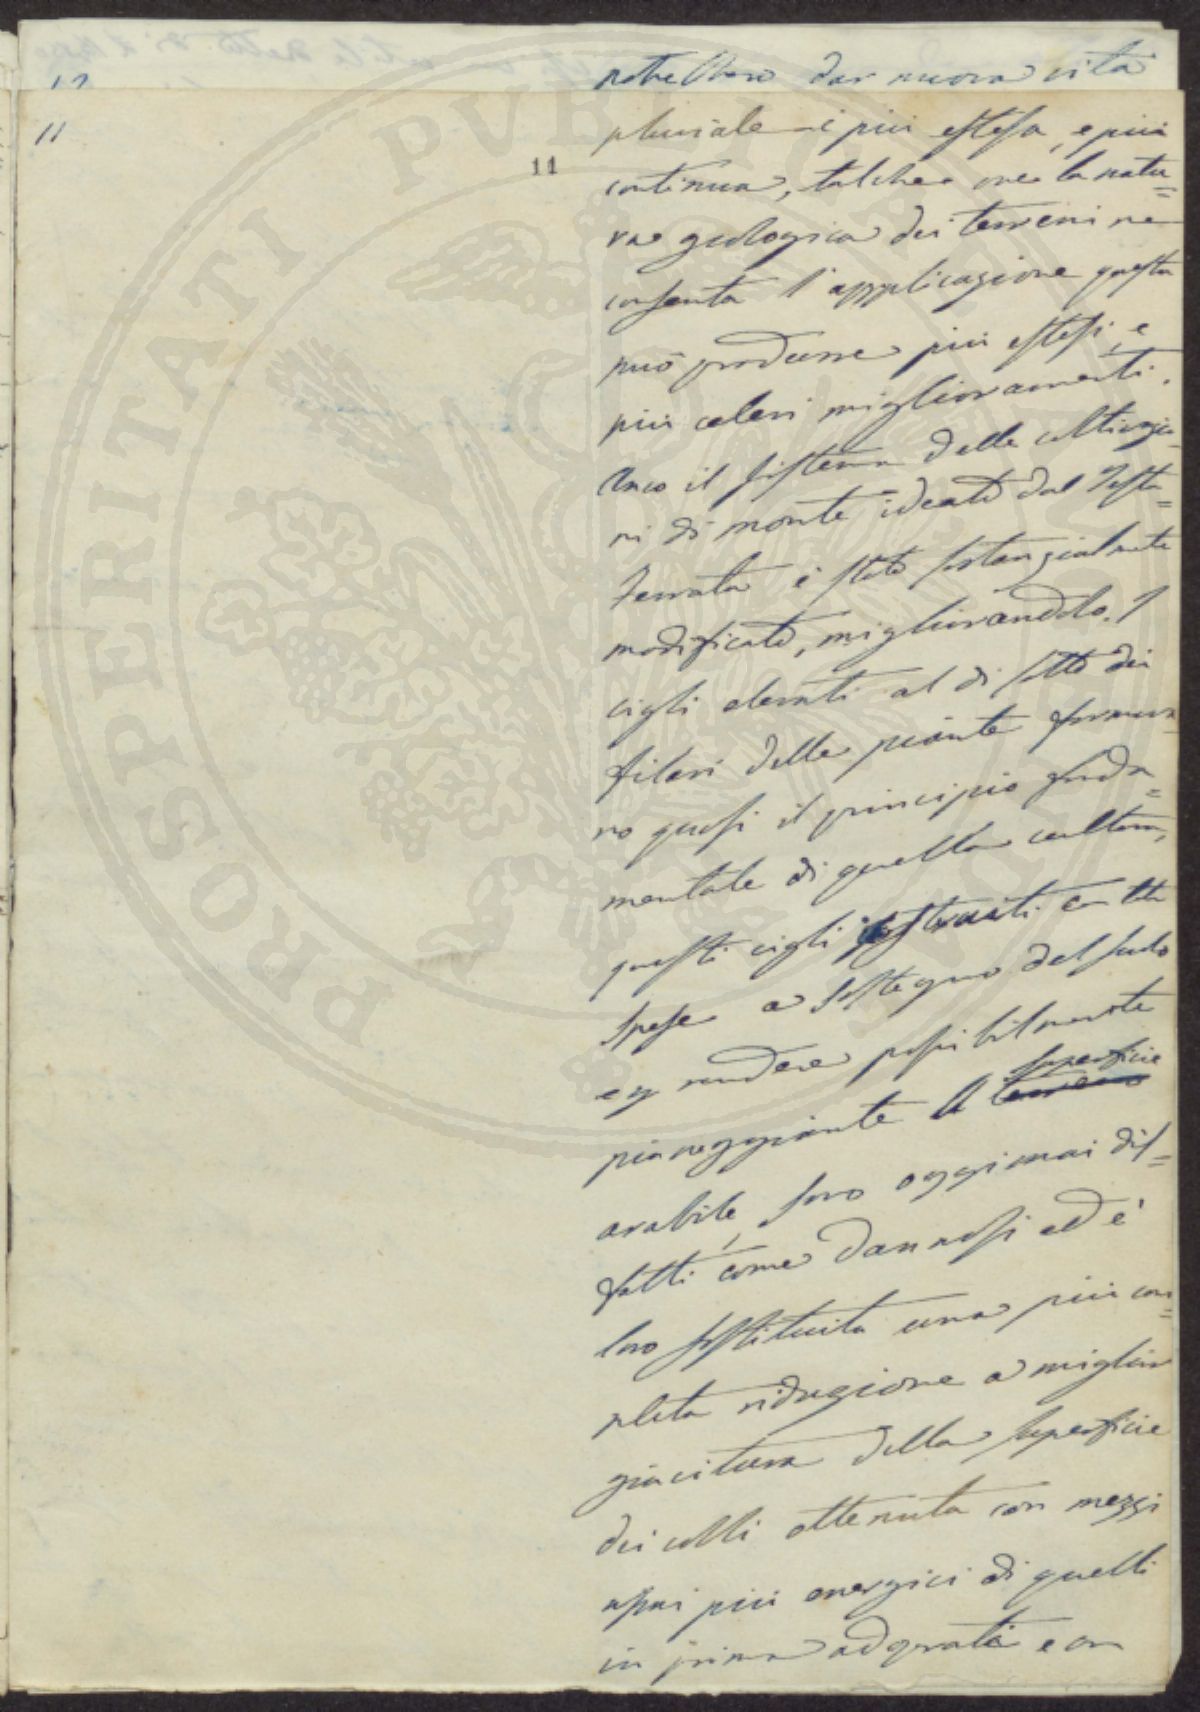 potrebbero dar nuova vita
12
11
11
pluviale è più estesa, e più
continua, talche ove la natu=
ra geologica dei terreni ne
consenta l'applicazione questa
può produrre più estesi, e
più celeri miglioramenti.
Anco il sistema delle coltivazio=
ni di monte ideato dal Testa=
ferrata è stato sostanzialmente
modificato, migliorandolo. I
cigli elevati al di sotto dei
filari delle piante formava=
no quasi il principio fonda=
mentale di quella cultura,
questi cigli costruiti con tta
spese a sostegno del suolo
e p rendere possibilmente
pianeggiante la terreno superficie
arabile, sono oggimai dis=
fatti come dannosi ed è
loro sostituita una più com=
pleta riduzione a miglior
giacitura della superficie
dei colli ottenuta con mezzi
assai più energici di quelli
in prima adoprati e con
PROSPERITATI PVBLICAE AVGENDAE